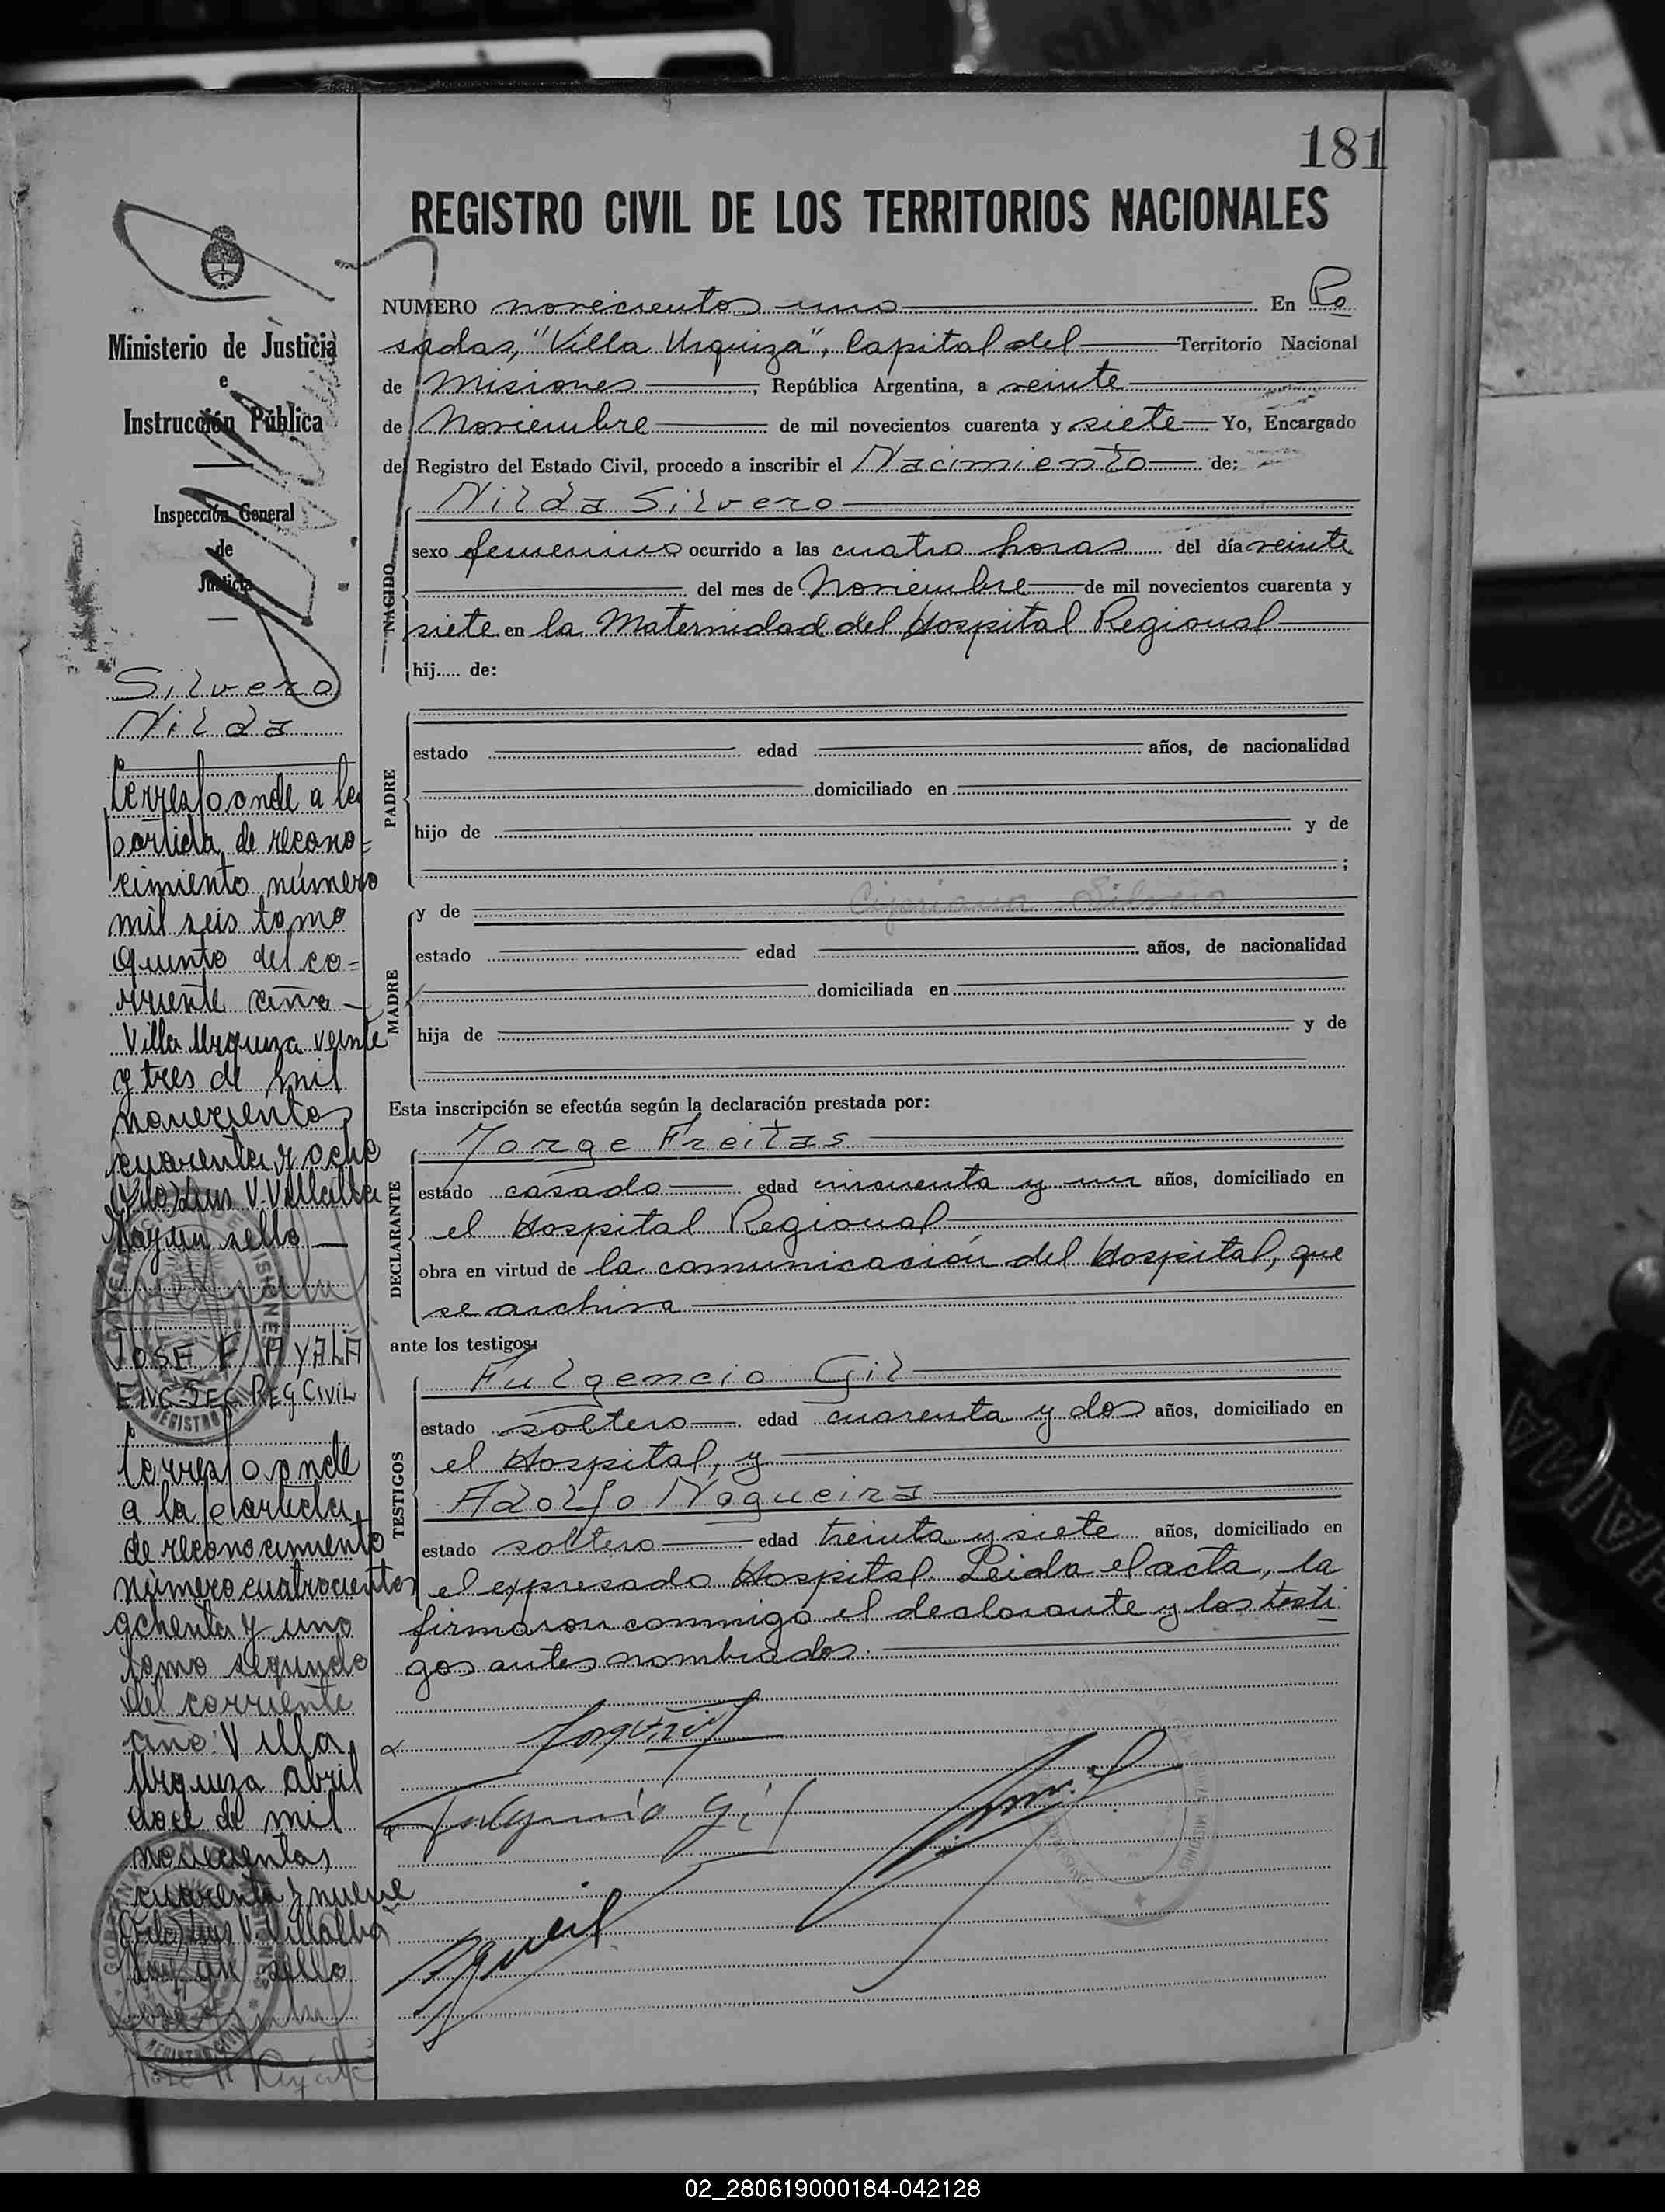 181
REGISTRO CIVIL DE LOS TERRITORIOS NACIONALES
NUMERO novecientos uno En Po
sadas, "Villa Urquiza", Capital del Territorio Nacional
de Misiones, República Argentina, a veinte
de Noviembre de mil novecientos cuarenta y siete Yo, Encargado
del Registro del Estado Civil, procedo a inscribir el Nacimiento de:
Nilda Silvero
NACIDO
sexo femenino ocurrido a las cuatro horas del día veinte
del mes de Noviembre de mil novecientos cuarenta y
siete en la Maternidad del Hospital Regional
hij..... de:
PADRE
estado edad años, de nacionalidad
domiciliado en
hijo de y de
;
MADRE
y de Cipriana Silvero
estado edad años, de nacionalidad
domiciliada en
hija de y de
Esta inscripción se efectúa según la declaración prestada por:
DECLARANTE
Jorge Freitas
estado casado edad cincuenta y un años, domiciliado en
el Hospital Regional
obra en virtud de la comunicación del Hospital, que
se archiva
ante los testigos:
TESTIGOS
Fulgencio Gil
estado soltero edad cuarenta y dos años, domiciliado en
el Hospital, y
Adolfo Nogueira
estado soltero edad treinta y siete años, domiciliado en
el expresado Hospital. Leida el acta, la
firmaron conmigo el declarante y los testi
gos antes nombrados.
Fulgencio Gil
Ministerio de Justicia
e
Instrucción Pública
Inspección General
de
Justicia
Silvero
Nilda
Corresponde a la
partida de recono=
cimiento número
mil seis tomo
quinto del co=
rriente año
Villa Urquiza veinte
y tres de mil
novecientos
cuarenta y ocho
(Fdo) Luis V. Villalba
Hay un sello
JOSE F AYALA
ENC. SEC REG CIVIL
Corresponde
a la partida
de reconocimiento
número cuatrocientos
ochenta y uno
tomo segundo
del corriente
año. Villa
Urquiza abril
doce de mil
novecientos
cuarenta y nueve
(Fdo) Luis V. Villalba
Hay un sello
02_280619000184-042128